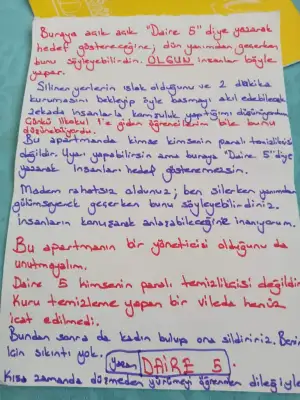 Buraya açık açık "Daire 5" diye yazarak
hedef göstereceğine; dün yanımdan geçerken
bunu söyleyebilirdin. OLGUN insanlar böyle
yapar.
Silinen yerlerin ıslak olduğunu ve 2 dakika
kurumasını bekleyip öyle basmayı akıl edebilecek
zekada insanlarla komşuluk yaptığımı düşünüyordum.
Çünkü ilkokul 1'e giden öğrencilerim bile bunu
düşünebiliyordu.
Bu apartmanda kimse kimsenin paralı temizlikçisi
değildir. Uyarı yapabilirsin ama buraya "Daire 5" diye
yazarak insanları hedef gösteremezsin.
Madem rahatsız oldunuz; ben silerken yanımdan
gülümseyerek geçerken bunu söyleyebilirdiniz.
İnsanların konuşarak anlaşabileceğine inanıyorum.
Bu apartmanın bir yöneticisi olduğunu da
unutmayalım.
Daire 5 kimsenin paralı temizlikçisi değildir.
Kuru temizleme yapan bir vileda henüz
icat edilmedi.
Bundan sonra da kadın bulup ona sildiriniz. Benim
için sıkıntı yok.
Yazan DAİRE 5
Kısa zamanda düşmeden yürümeyi öğrenmen dileğiyle